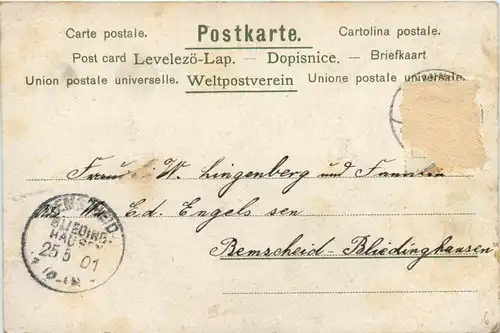 Carte postale. Postkarte. Cartolina postale.
Post card Levelezö-Lap. — Dopisnice. — Briefkaart
Union postale universelle. Weltpostverein Unione postale universale.
W. Lingenberg und Familie
Ed. Engels sen
Remscheid-Bliedinghausen
REMSCHEID-
BLIEDING-
HAUSEN
25 5 01
6